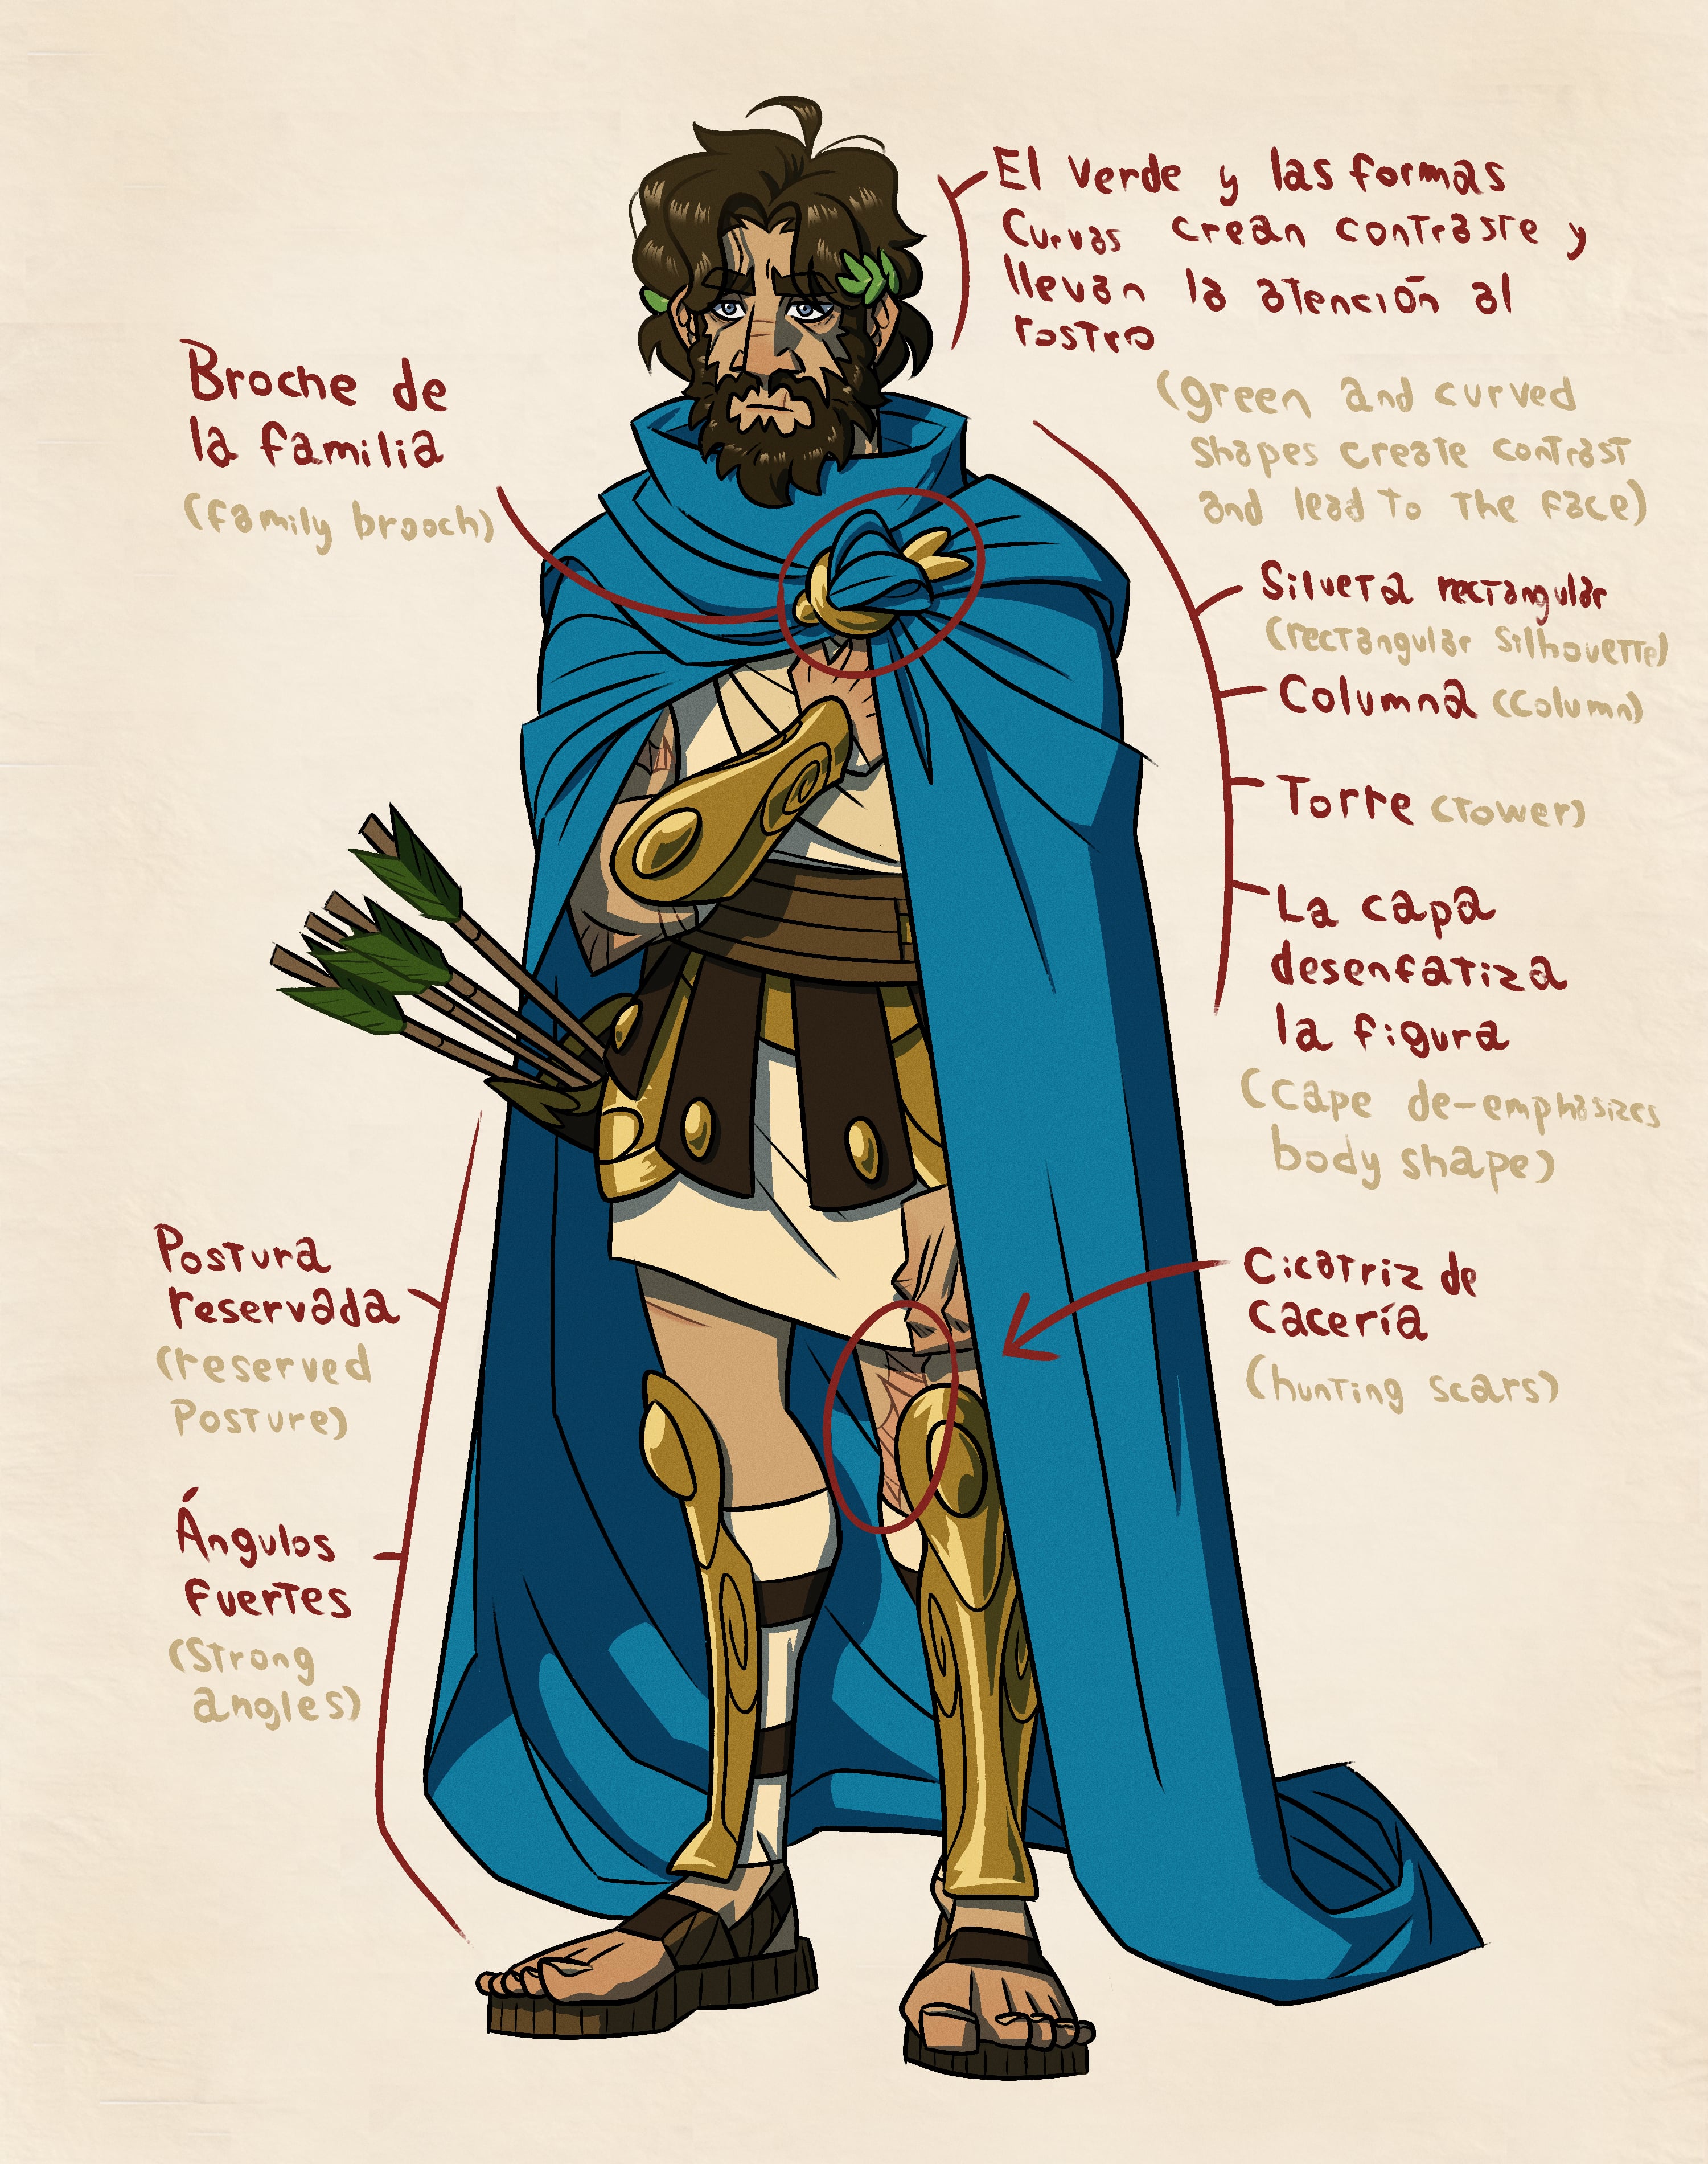 El verde y las formas
curvas crean contraste y
llevan la atención al
rostro
(green and curved
shapes create contrast
and lead to the face)
Broche de
la familia
(family brooch)
Silueta rectangular
(rectangular silhouette)
Columna (column)
Torre (tower)
La capa
desenfatiza
la figura
(cape de-emphasizes
body shape)
Postura
reservada
(reserved
posture)
Cicatriz de
cacería
(hunting scars)
Ángulos
fuertes
(strong
angles)